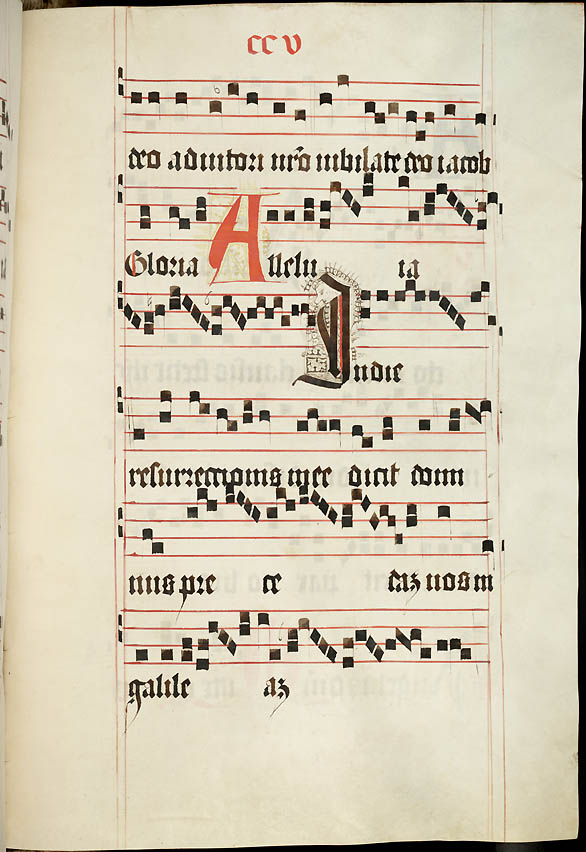 cc v
deo adiutori nr̄o iubilate deo iacob
Gloria Allelu ia
Indie
resurrectionis mee dicit domi
nus pre ce daꝫ uos in
galile aꝫ